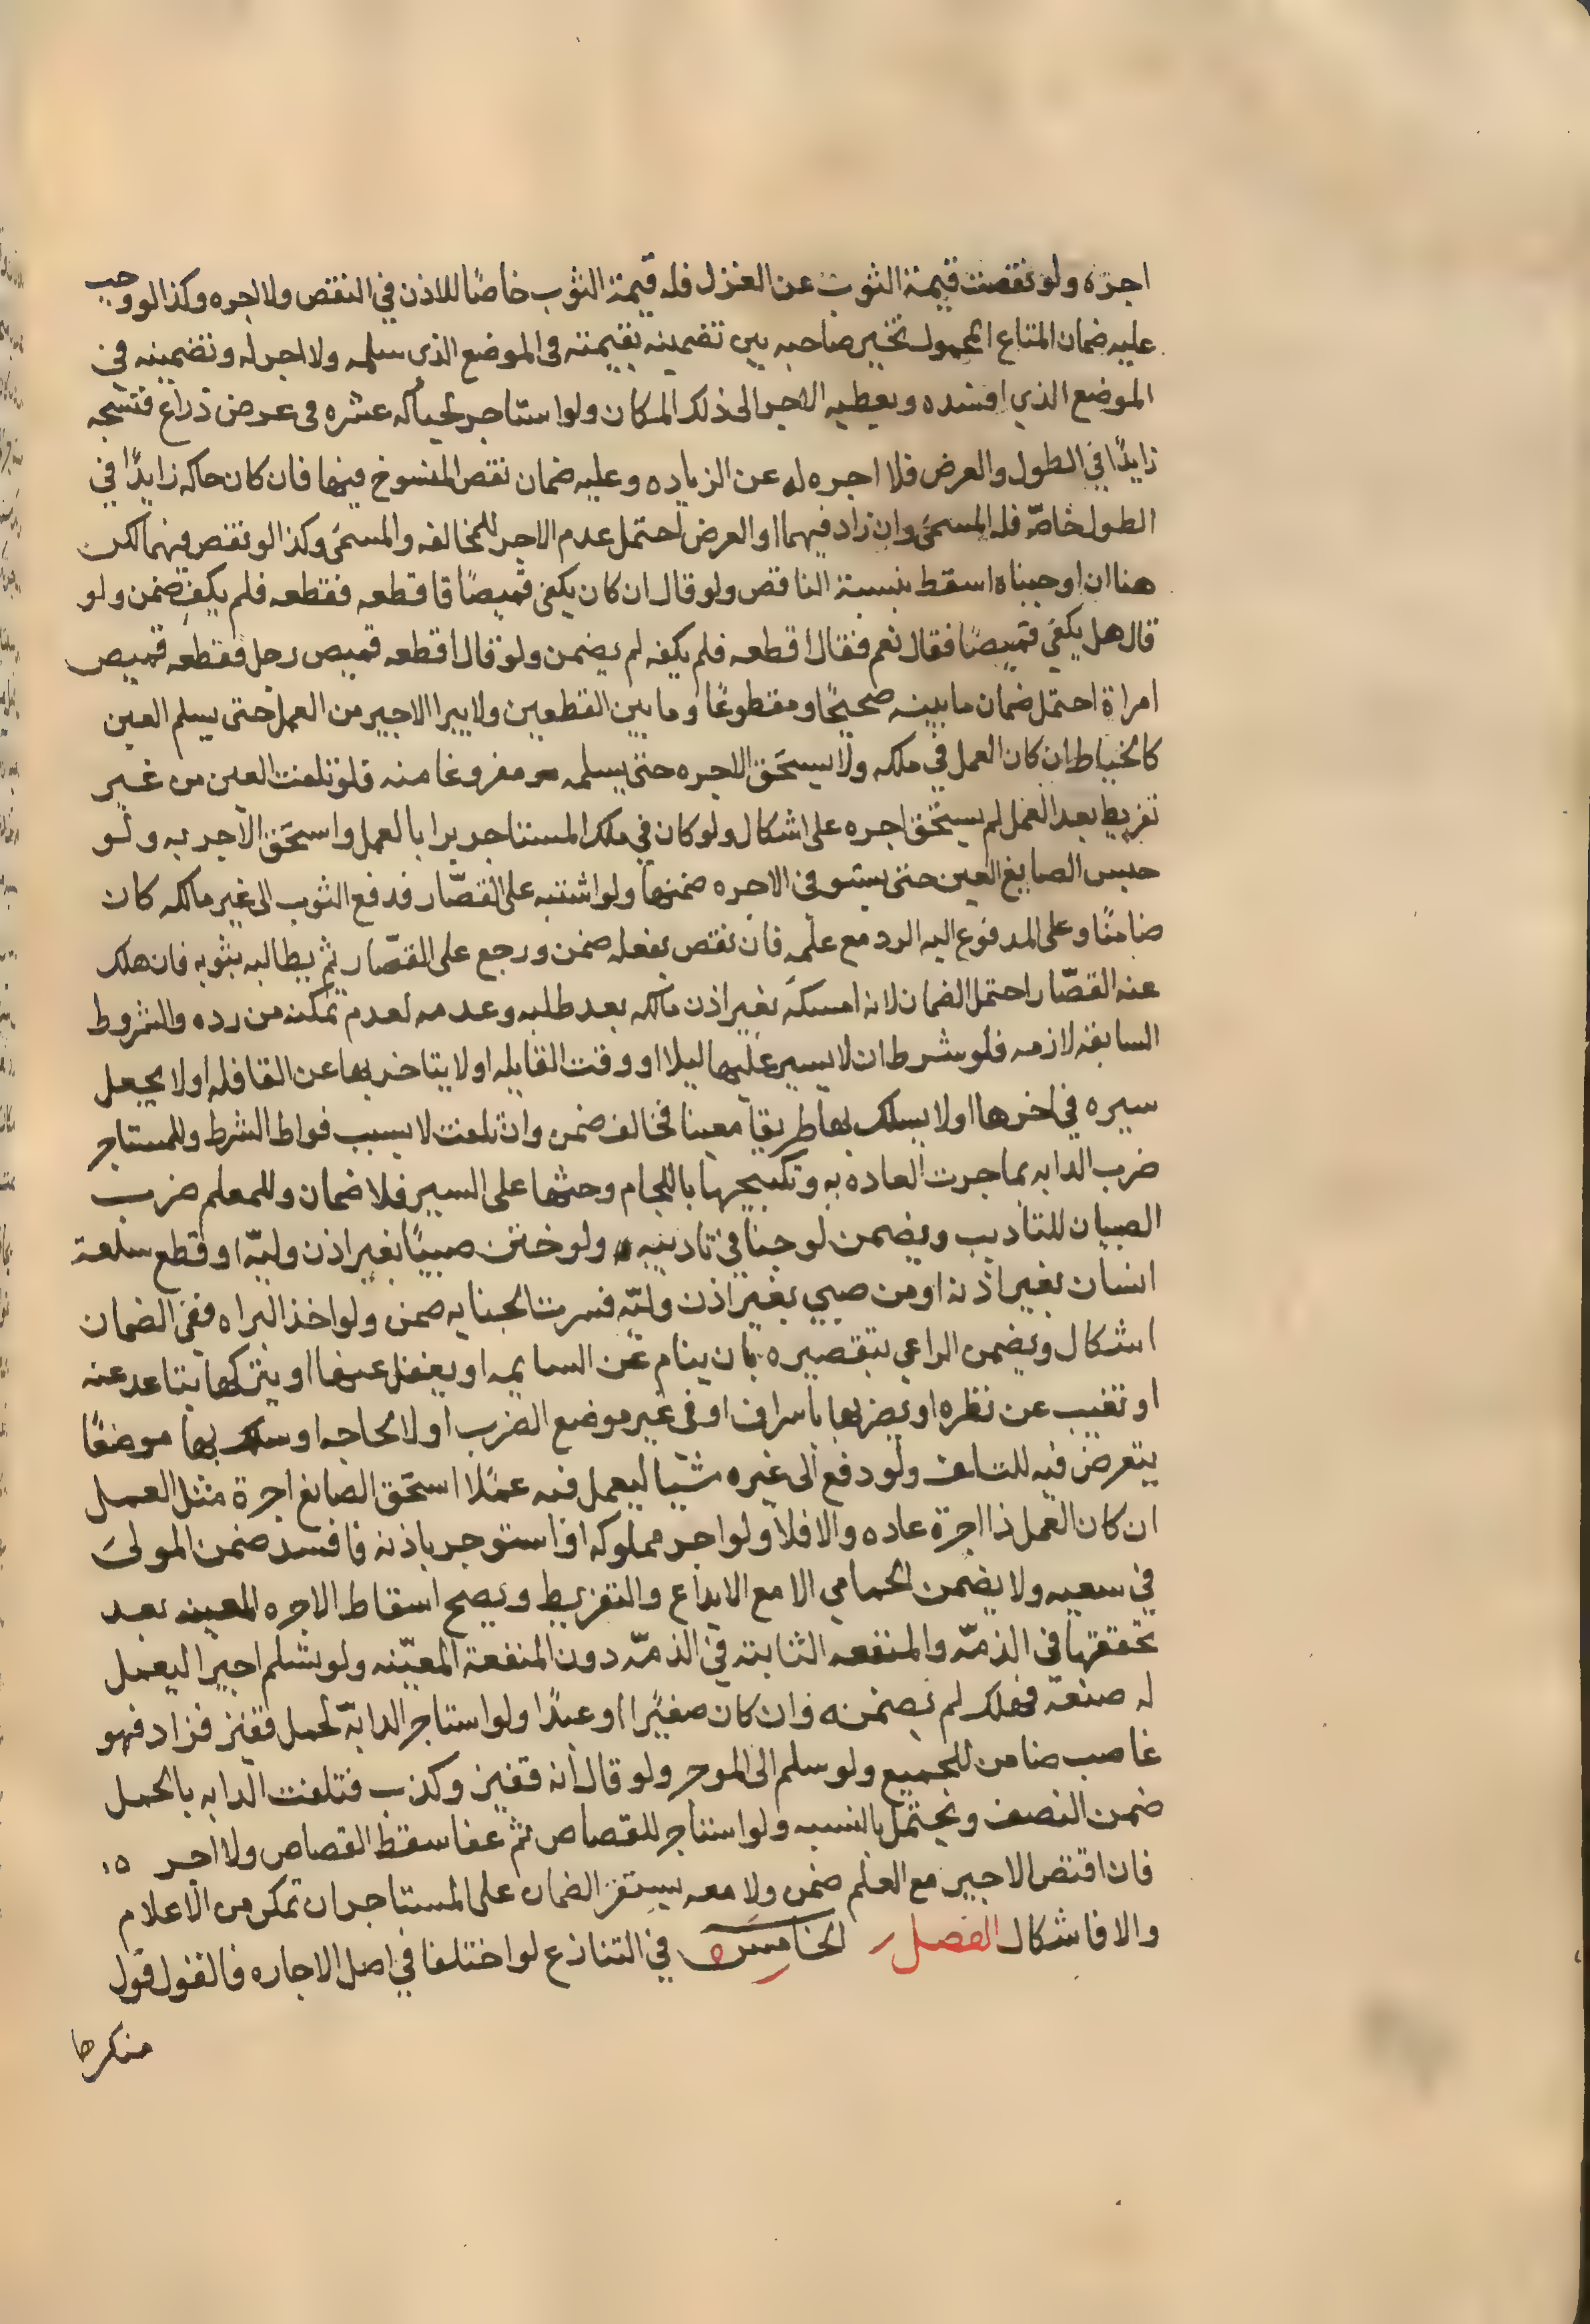 اجره ولو نقصت قيمة الثوب عن الغزل فله قيمة الثوب خاصًا للاذن في النقص ولا اجره وكذا لو وجب
عليه ضمان المتاع المحمول تخير صاحبه بين تضمينه بقيمته فى الموضع الذى سلمه ولا اجر له وتضمينه فى
الموضع الذي افسده ويعطيه الاجر الى ذلك المكان ولو استاجر لحياكه عشره فى عرض ذراع فنسجه
زايدًا في الطول والعرض فلا اجره له عن الزياده وعليه ضمان نقص المنسوج فيها فان كان حاكه زايدًا في
الطول خاصّة فله المسمى وان زاد فيهما او العرض احتمل عدم الاجر للمخالفه والمسمى وكذا لو نقص فيهما لكن
هنا ان اوجبناه اسقط بنسبة الناقص ولو قال ان كان يكفى قميصًا فاقطعه فقطعه فلم يكف ضمن ولو
قال هل يكفى قميصًا فقال نعم فقال اقطعه فلم يكفه لم يضمن ولو قال اقطعه قميص رجل فقطعه قميص
امراة احتمل ضمان ما بينه صحيحًا ومقطوعًا وما بين القطعين ولا يبرا الاجير من العمل حتى يسلم العين
كالخياط ان كان العمل في ملكه ولا يستحق الاجره حتى يسلمه مفروغا منه فلو تلفت العين من غير
تفريط بعد العمل لم يستحق اجره على اشكال ولو كان في ملك المستاجر يبرا بالعمل واستحق الاجر به ولو
حبس الصايغ العين حتى يستوفى الاجره ضمنها ولو اشتبه على القصّار فدفع الثوب الى غير مالكه كان
ضامنًا وعلى المدفوع اليه الرد مع علمه فان نقص بفعله ضمن ورجع على القصّار ثم يطالبه بثوبه فان هلك
عند القصّار احتمل الضمان لانه امسكه بغير اذن مالكه بعد طلبه وعدمه لعدم تمكنه من رده والشروط
السابقه لازمه فلو شرط ان لا يسير عليها ليلا او وقت القايله او لا يتاخر بها عن القافله او لا يجعل
سيره في اخرها او لا يسلك بها طريقا معينا فخالف ضمن وان تلفت لا بسبب فواط الشرط وللمستاجر
ضرب الدابه بما جرت العاده به وتكبيحها باللجام وحثها على السير فلا ضمان وللمعلم ضرب
الصبيان للتاديب ويضمن لو جنا في تاديبه ولو ختن صبيًا بغير اذن وليّه او قطع سلعة
انسان بغير اذنه او من صبي بغير اذن وليّه فسرت الجنايه ضمن ولو اخذ البراه ففى الضمان
اشكال ويضمن الراعي بتقصيره بان ينام عن السايمه او يغفل عنها او يتركها يتباعد عنه
او تغيب عن نظره او يضربها باسراف او فى غير موضع الضرب او لا لحاجه او سلك بها موضعًا
يتعرض فيه للتلف ولو دفع الى غيره شيئا ليعمل فيه عملا استحق الصانع اجرة مثل العمل
ان كان العمل ذا اجرة عاده والا فلا ولو اجر مملوكه او استوجر باذنه فافسد ضمن المولى
في سعيه ولا يضمن الحمامي الا مع الايداع والتفريط ويصح اسقاط الاجره المعينه بعد
تحققها في الذمّه والمنفعه الثابته في الذمّه دون المنفعة المعيّنه ولو تسلم اجيرا ليعمل
له صنعة فهلك لم يضمنه وان كان صغيرًا او عبدًا ولو استاجر الدابّة لحمل قفيز فزاد فهو
غاصب ضامن للجميع ولو سلم الى الموجر ولو قال انه قفيز وكذب فتلفت الدابه بالحمل
ضمن النصف ويحتمل بالنسبه ولو استاجر للقصاص ثم عفا سقط القصاص ولا اجر
فان اقتص الاجير مع العلم ضمن ولا معه يستقر الضمان على المستاجر ان تمكن من الاعلام
والا فاشكال الفصل الخامس في التنازع لو اختلفا في اصل الاجاره فالقول قول
منكرها